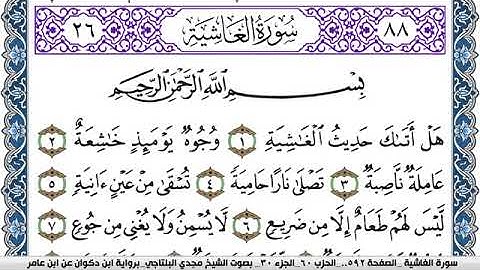 ٢٦ سُورَةُ الغَاشِيَةِ ٨٨
بِسْمِ اللَّهِ الرَّحْمَٰنِ الرَّحِيمِ
هَلْ أَتَىٰكَ حَدِيثُ الْغَٰشِيَةِ ١ وُجُوهٌ يَوْمَئِذٍ خَٰشِعَةٌ ٢
عَامِلَةٌ نَّاصِبَةٌ ٣ تَصْلَىٰ نَارًا حَامِيَةً ٤ تُسْقَىٰ مِنْ عَيْنٍ ءَانِيَةٍ ٥
لَّيْسَ لَهُمْ طَعَامٌ إِلَّا مِن ضَرِيعٍ ٦ لَّا يُسْمِنُ وَلَا يُغْنِى مِن جُوعٍ ٧
سورة الغاشية_الصفحة ٥٩٢.. الحزب ٦٠_الجزء ٣٠_ بصوت الشيخ مجدي البلتاجي_برواية ابن ذكوان عن ابن عامر